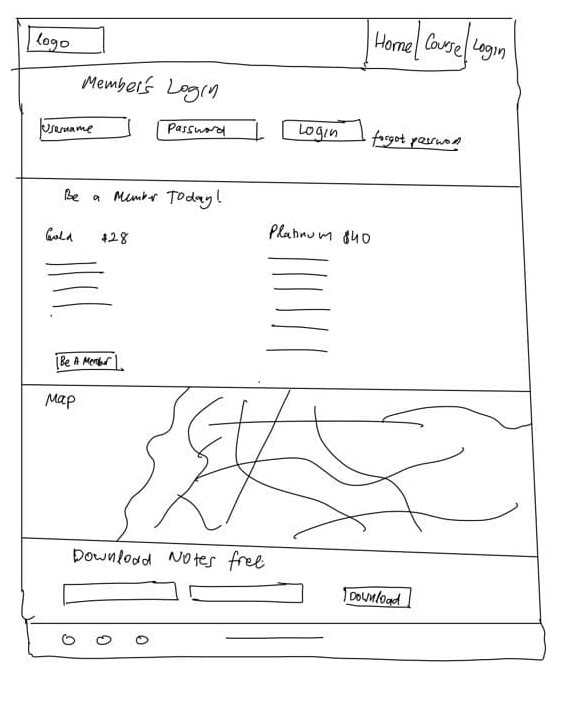 logo
Home Course Login
Member's Login
Username Password Login forgot password
Be a Member Today!
Gold $28 Platinum $40
Be A Member
Map
Download Notes free
Download